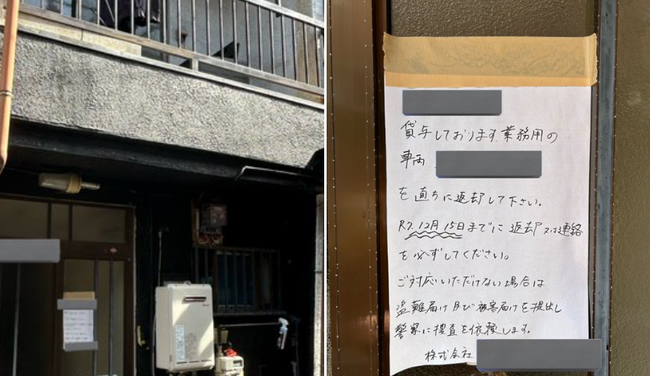 貸与しております業務用の
車両
を直ちに返却して下さい。
R7.12月15日までに返却又は連絡
を必ずしてください。
ご対応いただけない場合は
盗難届け及び被害届けを提出し
警察に捜査を依頼します。
株式会社